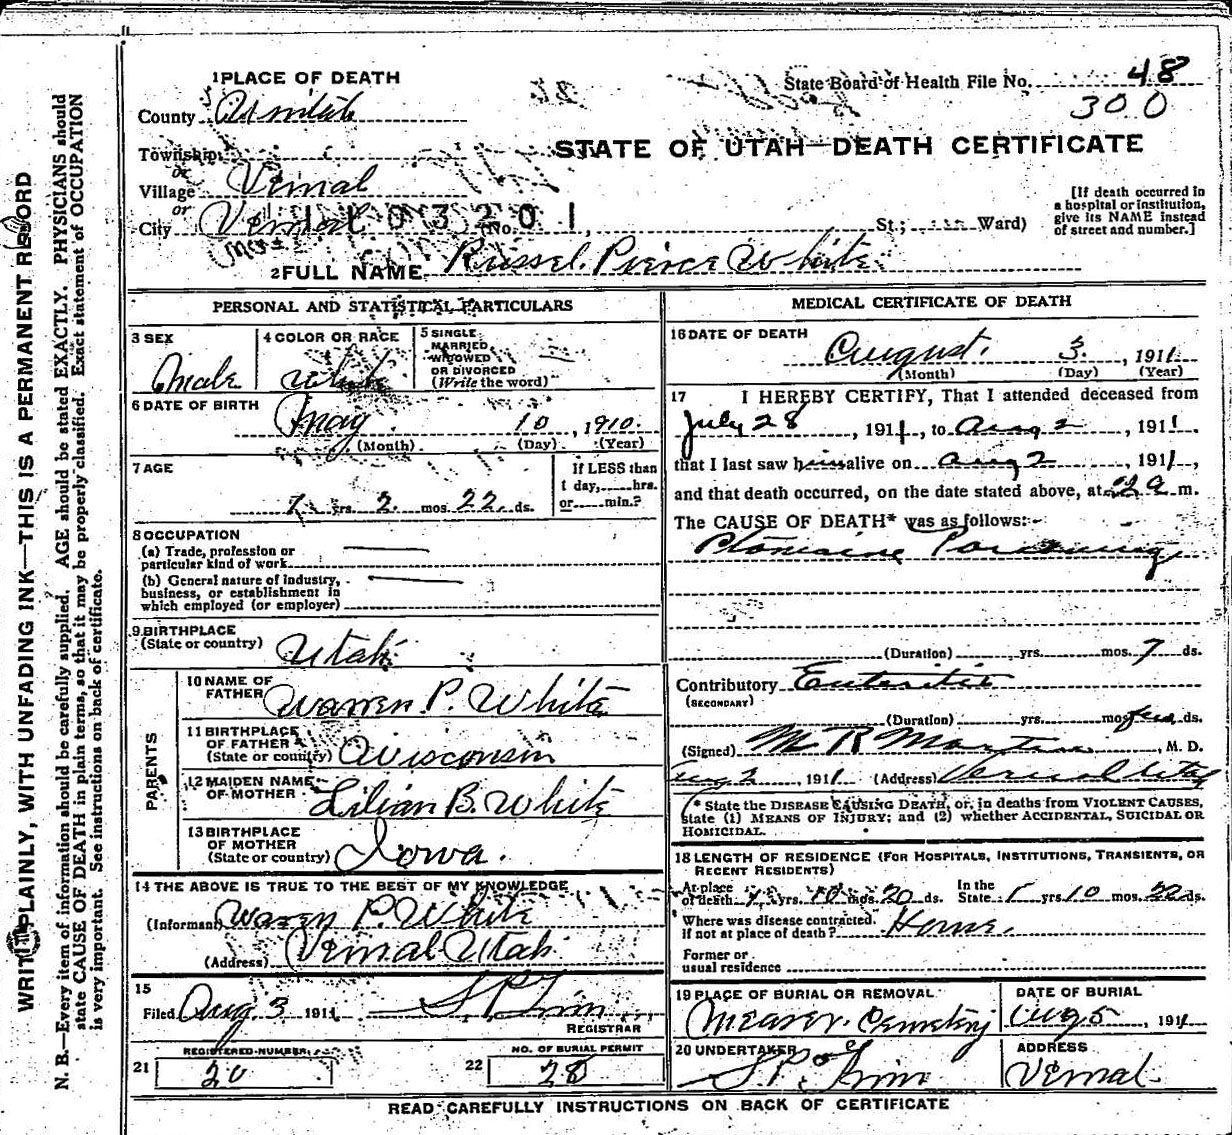 WRITE PLAINLY, WITH UNFADING INK—THIS IS A PERMANENT RECORD
N. B.—Every item of information should be carefully supplied. AGE should be stated EXACTLY. PHYSICIANS should
state CAUSE OF DEATH in plain terms, so that it may be properly classified. Exact statement of OCCUPATION
is very important. See instructions on back of certificate.
1 PLACE OF DEATH
State Board of Health File No. 48
300
County Uintah
STATE OF UTAH—DEATH CERTIFICATE
Township
or
Village Vernal
or
City Vernal (No. St.; Ward)
11103201
[If death occurred in
a hospital or institution,
give its NAME instead
of street and number.]
2 FULL NAME Russel Pierce White
PERSONAL AND STATISTICAL PARTICULARS
3 SEX
Male
4 COLOR OR RACE
White
5 SINGLE
MARRIED
WIDOWED
OR DIVORCED
(Write the word)
6 DATE OF BIRTH
May 10, 1910
(Month) (Day) (Year)
7 AGE
1 yrs. 2 mos. 22 ds.
If LESS than
1 day, hrs.
or min.?
8 OCCUPATION
(a) Trade, profession or
particular kind of work
(b) General nature of industry,
business, or establishment in
which employed (or employer)
9 BIRTHPLACE
(State or country)
Utah
PARENTS
10 NAME OF
FATHER Warren P. White
11 BIRTHPLACE
OF FATHER
(State or country) Wisconsin
12 MAIDEN NAME
OF MOTHER Lilian B. White
13 BIRTHPLACE
OF MOTHER
(State or country) Iowa.
14 THE ABOVE IS TRUE TO THE BEST OF MY KNOWLEDGE
(Informant) Warren P. White
(Address) Vernal Utah
15
Filed Aug 3 1911
REGISTRAR
REGISTERED NUMBER
21 20
NO. OF BURIAL PERMIT
22 28
MEDICAL CERTIFICATE OF DEATH
16 DATE OF DEATH
August 3, 1911
(Month) (Day) (Year)
17 I HEREBY CERTIFY, That I attended deceased from
July 28, 1911, to Aug 2, 1911,
that I last saw him alive on Aug 2, 1911,
and that death occurred, on the date stated above, at 2 a m.
The CAUSE OF DEATH* was as follows:
Ptomaine Poisoning
(Duration) yrs. mos. 7 ds.
Contributory Enteritis
(SECONDARY)
(Duration) yrs. mos. few ds.
(Signed) M. D.
Aug 2, 1911 (Address) Vernal Utah
* State the DISEASE CAUSING DEATH, or, in deaths from VIOLENT CAUSES,
state (1) MEANS OF INJURY; and (2) whether ACCIDENTAL, SUICIDAL OR
HOMICIDAL.
18 LENGTH OF RESIDENCE (FOR HOSPITALS, INSTITUTIONS, TRANSIENTS, OR
RECENT RESIDENTS)
At place
of death yrs. 10 mos. 20 ds.
In the
State 1 yrs. 10 mos. 22 ds.
Where was disease contracted
if not at place of death? Home.
Former or
usual residence
19 PLACE OF BURIAL OR REMOVAL
Cemetery
DATE OF BURIAL
Aug 5, 1911
20 UNDERTAKER
ADDRESS
Vernal
READ CAREFULLY INSTRUCTIONS ON BACK OF CERTIFICATE